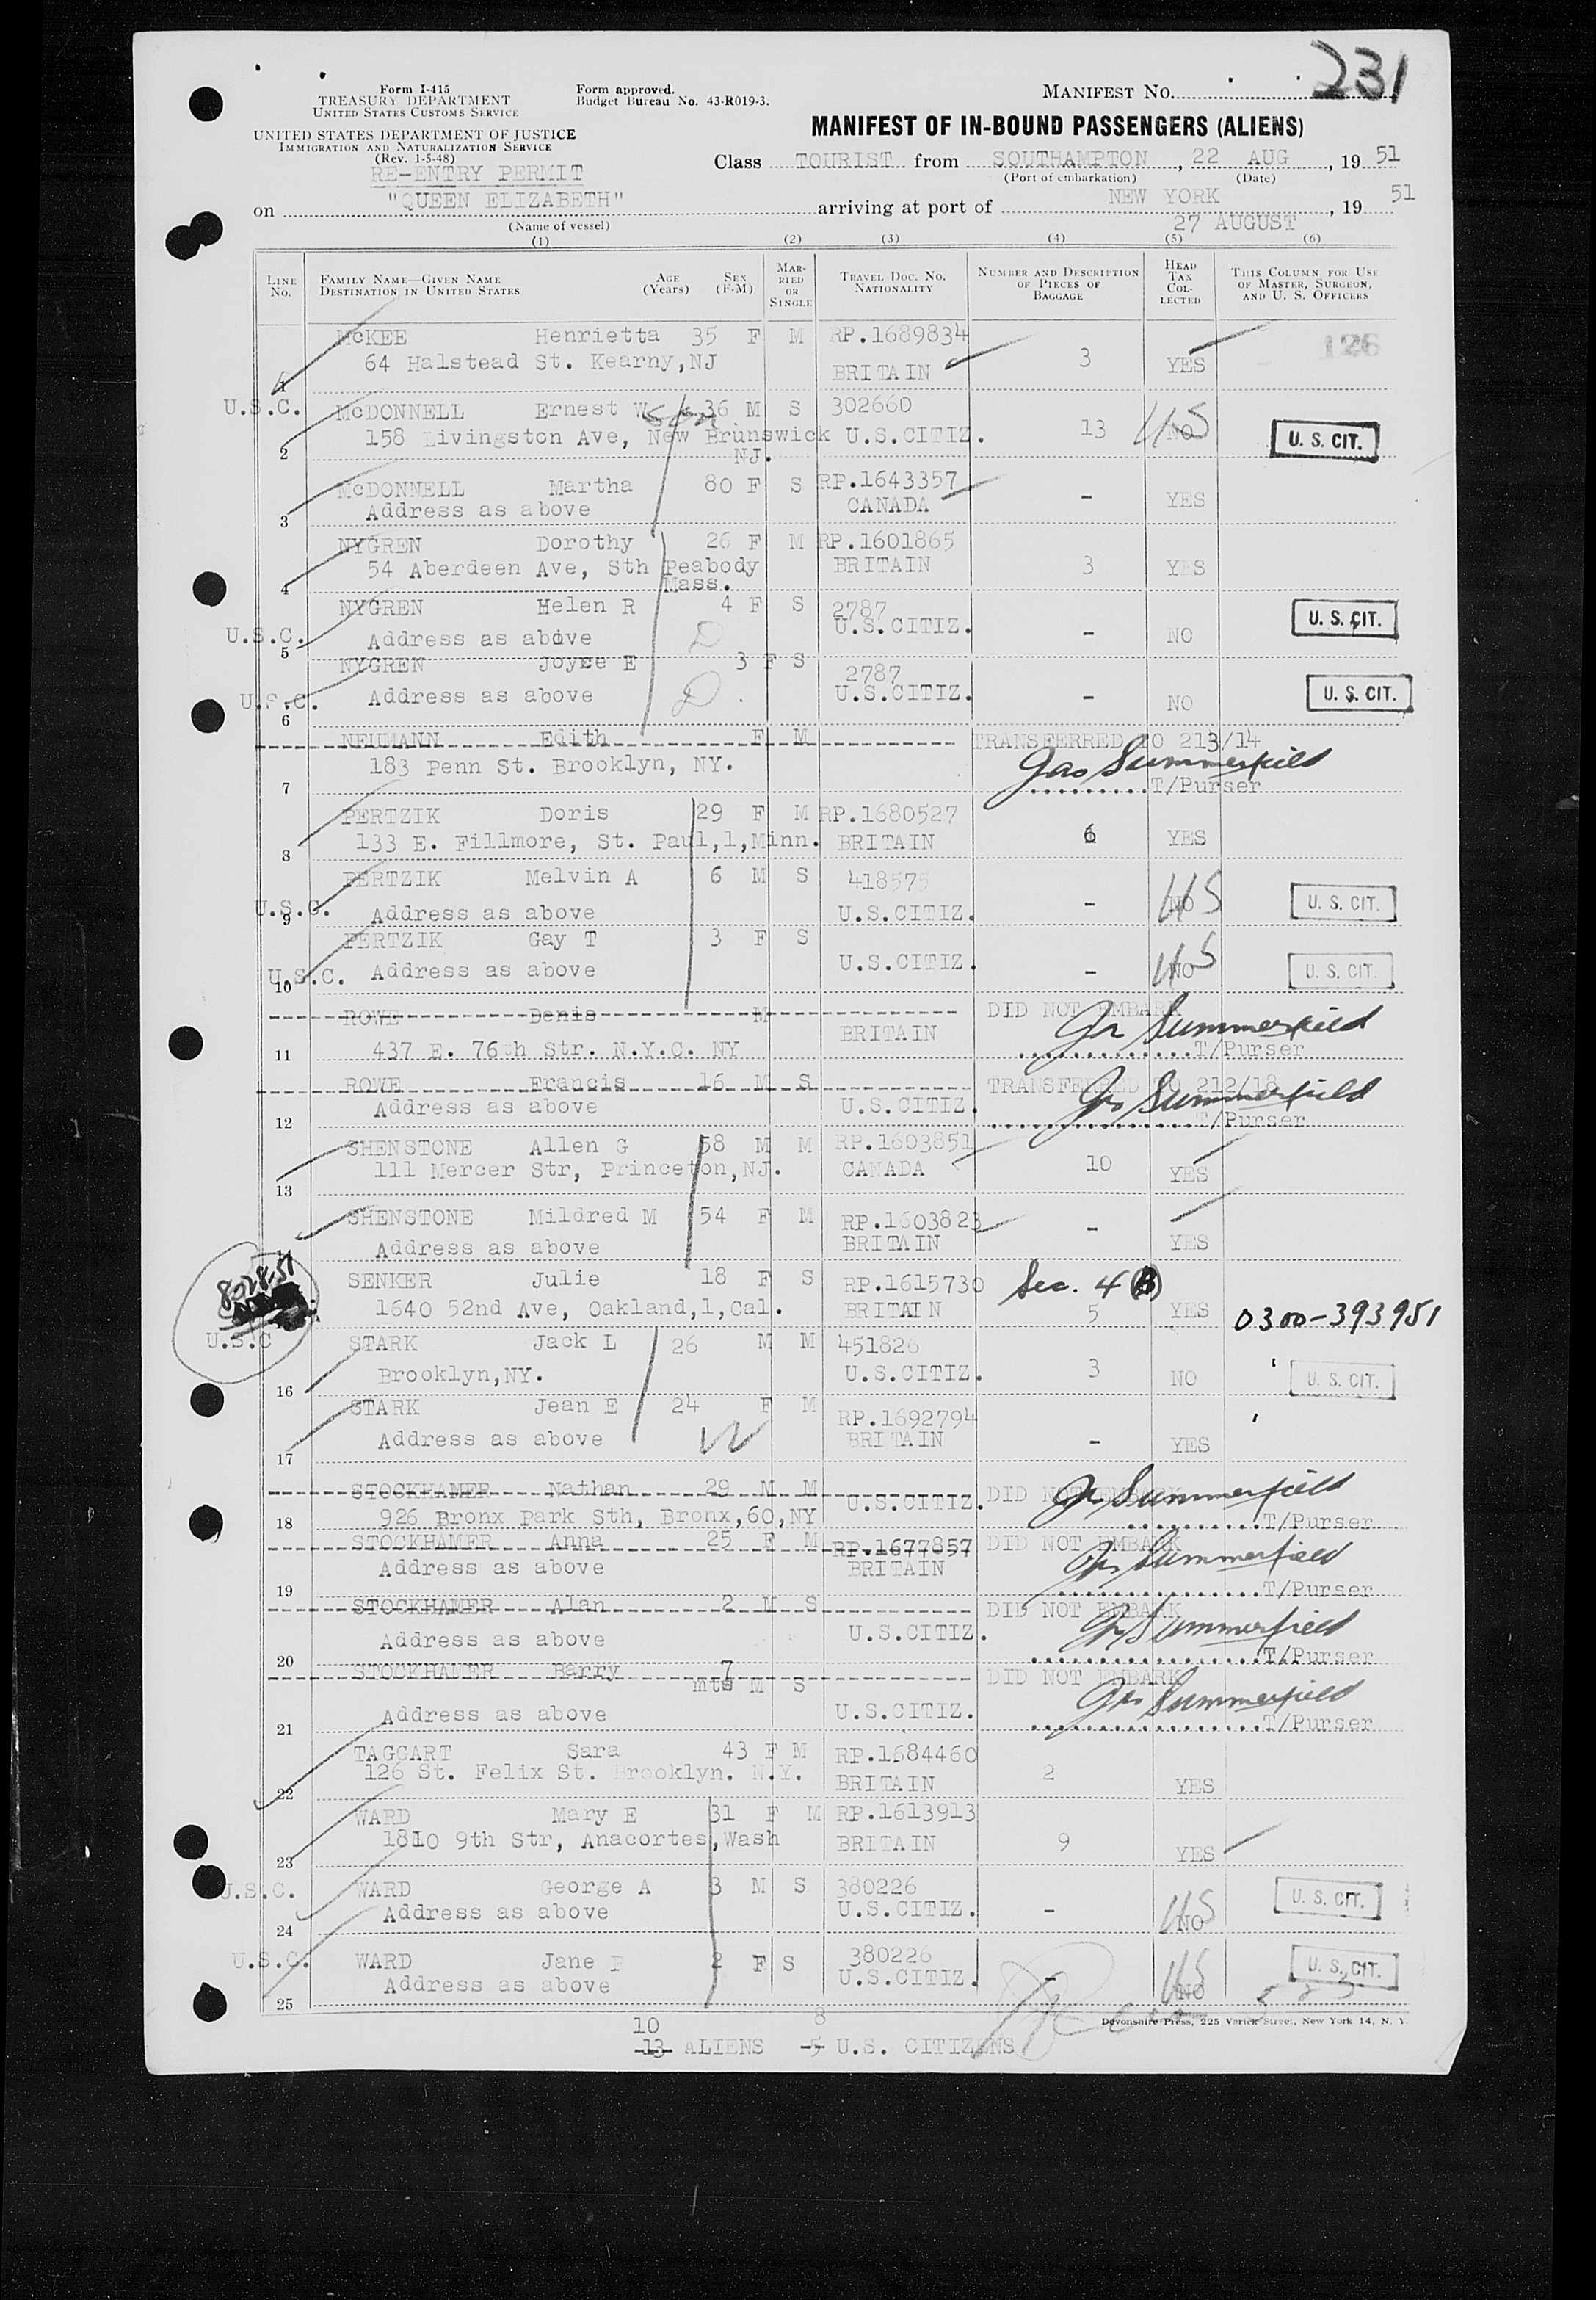 231
Form I-415
TREASURY DEPARTMENT
UNITED STATES CUSTOMS SERVICE
Form approved.
Budget Bureau No. 43-R019-3.
MANIFEST NO.
UNITED STATES DEPARTMENT OF JUSTICE
IMMIGRATION AND NATURALIZATION SERVICE
(Rev. 1-5-48)
MANIFEST OF IN-BOUND PASSENGERS (ALIENS)
RE-ENTRY PERMIT
Class TOURIST from SOUTHAMPTON, 22 AUG, 19 51
(Port of embarkation) (Date)
on "QUEEN ELIZABETH" arriving at port of NEW YORK, 19 51
(Name of vessel) 27 AUGUST
(1) (2) (3) (4) (5) (6)
LINE NO. FAMILY NAME—GIVEN NAME DESTINATION IN UNITED STATES AGE (YEARS) SEX (F-M) MARRIED OR SINGLE TRAVEL DOC. NO. NATIONALITY NUMBER AND DESCRIPTION OF PIECES OF BAGGAGE HEAD TAX COLLECTED THIS COLUMN FOR USE OF MASTER, SURGEON, AND U. S. OFFICERS
McKEE Henrietta 35 F M RP.1689834 126
64 Halstead St. Kearny,NJ BRITAIN 3 YES
1
U.S.C. McDONNELL Ernest W son 36 M S 302660
158 Livingston Ave, New Brunswick U.S.CITIZ. 13 NO US U. S. CIT.
2 NJ.
McDONNELL Martha 80 F S RP.1643357
Address as above CANADA - YES
3
NYGREN Dorothy 26 F M RP.1601865
54 Aberdeen Ave, Sth Peabody BRITAIN 3 YES
4 Mass.
NYGREN Helen R 4 F S 2787 U. S. CIT.
U.S.C. Address as above D U.S.CITIZ. - NO
5
NYGREN Joyce E 3 F S 2787
U.S.C. Address as above D U.S.CITIZ. - NO U. S. CIT.
6
NEUMANN Edith F M TRANSFERRED TO 213/14
183 Penn St. Brooklyn, NY. Jas Summerfield
7 T/Purser
PERTZIK Doris 29 F M RP.1680527
133 E. Fillmore, St. Paul,1,Minn. BRITAIN 6 YES
8
PERTZIK Melvin A 6 M S 418575
U.S.C. 9 Address as above U.S.CITIZ. - NO US U. S. CIT.
PERTZIK Gay T 3 F S
U.S.C. 10 Address as above U.S.CITIZ. - NO US U. S. CIT.
ROWE Denis M BRITAIN DID NOT EMBARK
Jas Summerfield
11 437 E. 76th Str. N.Y.C. NY T/Purser
ROWE Francis 16 M S TRANSFERRED TO 212/18
Address as above U.S.CITIZ. Jas Summerfield
12 T/Purser
SHENSTONE Allen G 58 M M RP.1603851
111 Mercer Str, Princeton,NJ. CANADA 10 YES
13
SHENSTONE Mildred M 54 F M RP.1603823
14 Address as above BRITAIN - YES
8028-51
SENKER Julie 18 F S RP.1615730 Sec. 4 (B)
1640 52nd Ave, Oakland,1,Cal. BRITAIN 5 YES 0300-393951
U.S.C STARK Jack L 26 M M 451826
Brooklyn,NY. U.S.CITIZ. 3 NO U. S. CIT.
16
STARK Jean E 24 F M RP.1692794
Address as above W BRITAIN - YES
17
STOCKHAMER Nathan 29 M M U.S.CITIZ. DID NOT EMBARK
Jas Summerfield
18 926 Bronx Park Sth, Bronx,60,NY T/Purser
STOCKHAMER Anna 25 F M RP.1677857 DID NOT EMBARK
Address as above BRITAIN Jas Summerfield
19 T/Purser
STOCKHAMER Alan 2 M S DID NOT EMBARK
Address as above U.S.CITIZ. Jas Summerfield
20 T/Purser
STOCKHAMER Barry 7 mts M S DID NOT EMBARK
Address as above U.S.CITIZ. Jas Summerfield
21 T/Purser
TAGGART Sara 43 F M RP.1684460
126 St. Felix St. Brooklyn. N.Y. BRITAIN 2 YES
22
WARD Mary E 31 F M RP.1613913
1810 9th Str, Anacortes,Wash BRITAIN 9 YES
23
U.S.C. WARD George A 3 M S 380226
Address as above U.S.CITIZ. - NO US U. S. CIT.
24
U.S.C. WARD Jane 2 F S 380226
Address as above U.S.CITIZ. - NO US U. S. CIT.
25
Devonshire Press, 225 Varick Street, New York 14, N. Y.
10 8
13 ALIENS 5 U.S. CITIZENS